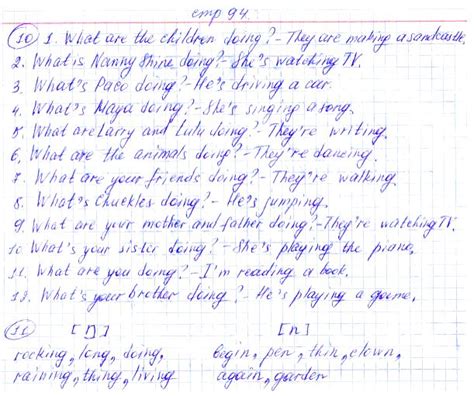 стр 94.
10 1. What are the children doing? - They are making a sandcastle.
2. What is Nanny Shine doing? - She's watching TV.
3. What's Paco doing? - He's driving a car.
4. What's Maya doing? - She's singing a song.
5. What are Larry and Lulu doing? - They're writing.
6. What are the animals doing? - They're dancing.
7. What are your friends doing? - They're walking.
8. What's Chuckles doing? - He's jumping.
9. What are your mother and father doing? - They're watching TV.
10. What's your sister doing? - She's playing the piano.
11. What are you doing? - I'm reading a book.
12. What's your brother doing? - He's playing a game.
11 [ŋ] [n]
rocking, long, doing, begin, pen, thin, clown,
raining, thing, living again, garden